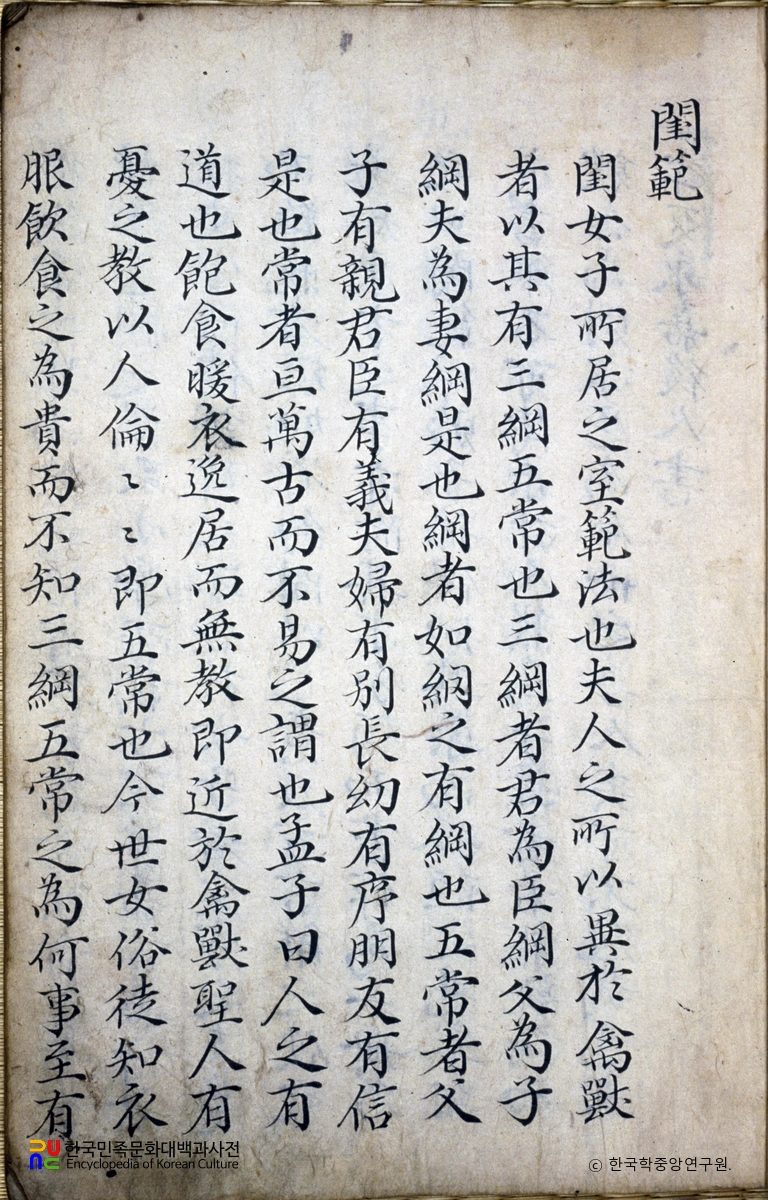 閨範
閨女子所居之室範法也夫人之所以異於禽獸
者以其有三綱五常也三綱者君為臣綱父為子
綱夫為妻綱是也綱者如網之有綱也五常者父
子有親君臣有義夫婦有別長幼有序朋友有信
是也常者亘萬古而不易之謂也孟子曰人之有
道也飽食暖衣逸居而無教即近於禽獸聖人有
憂之教以人倫〻〻即五常也今世女俗徒知衣
服飲食之為貴而不知三綱五常之為何事至有
한국민족문화대백과사전
Encyclopedia of Korean Culture
ⓒ 한국학중앙연구원.